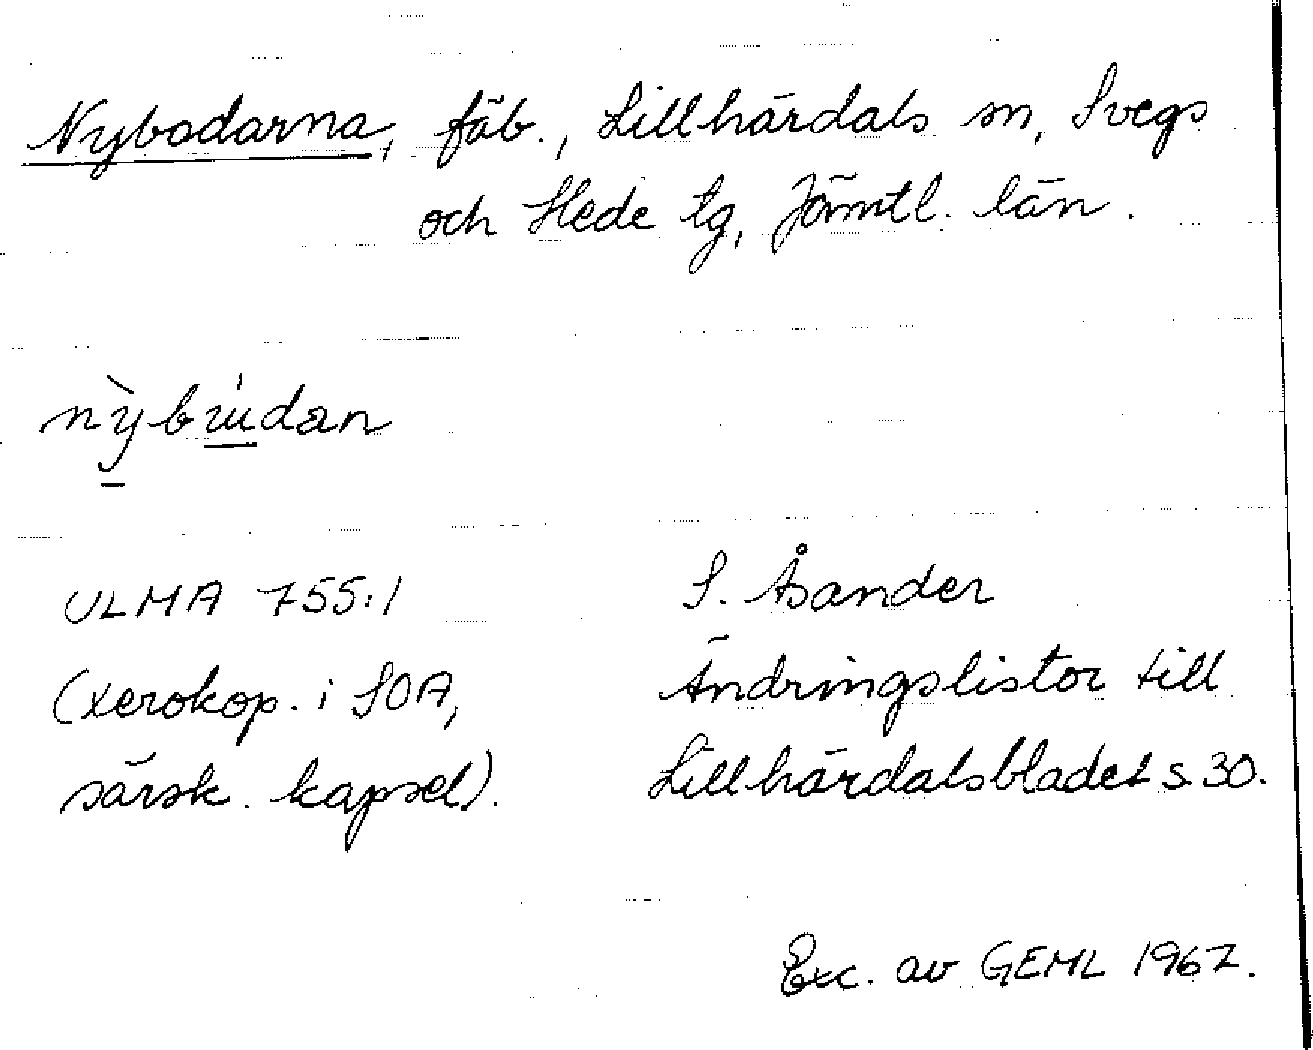 Nybodarna, fäb., Lillhärdals sn, Svegs
och Hede tg, Jämtl. län.
ULMA 755:1
S. Åsander
(xerokop. i SOA,
Ändringslistor till
särsk. kapsel).
Lillhärdalsbladet s 30.
Exc. av GEML 1967.